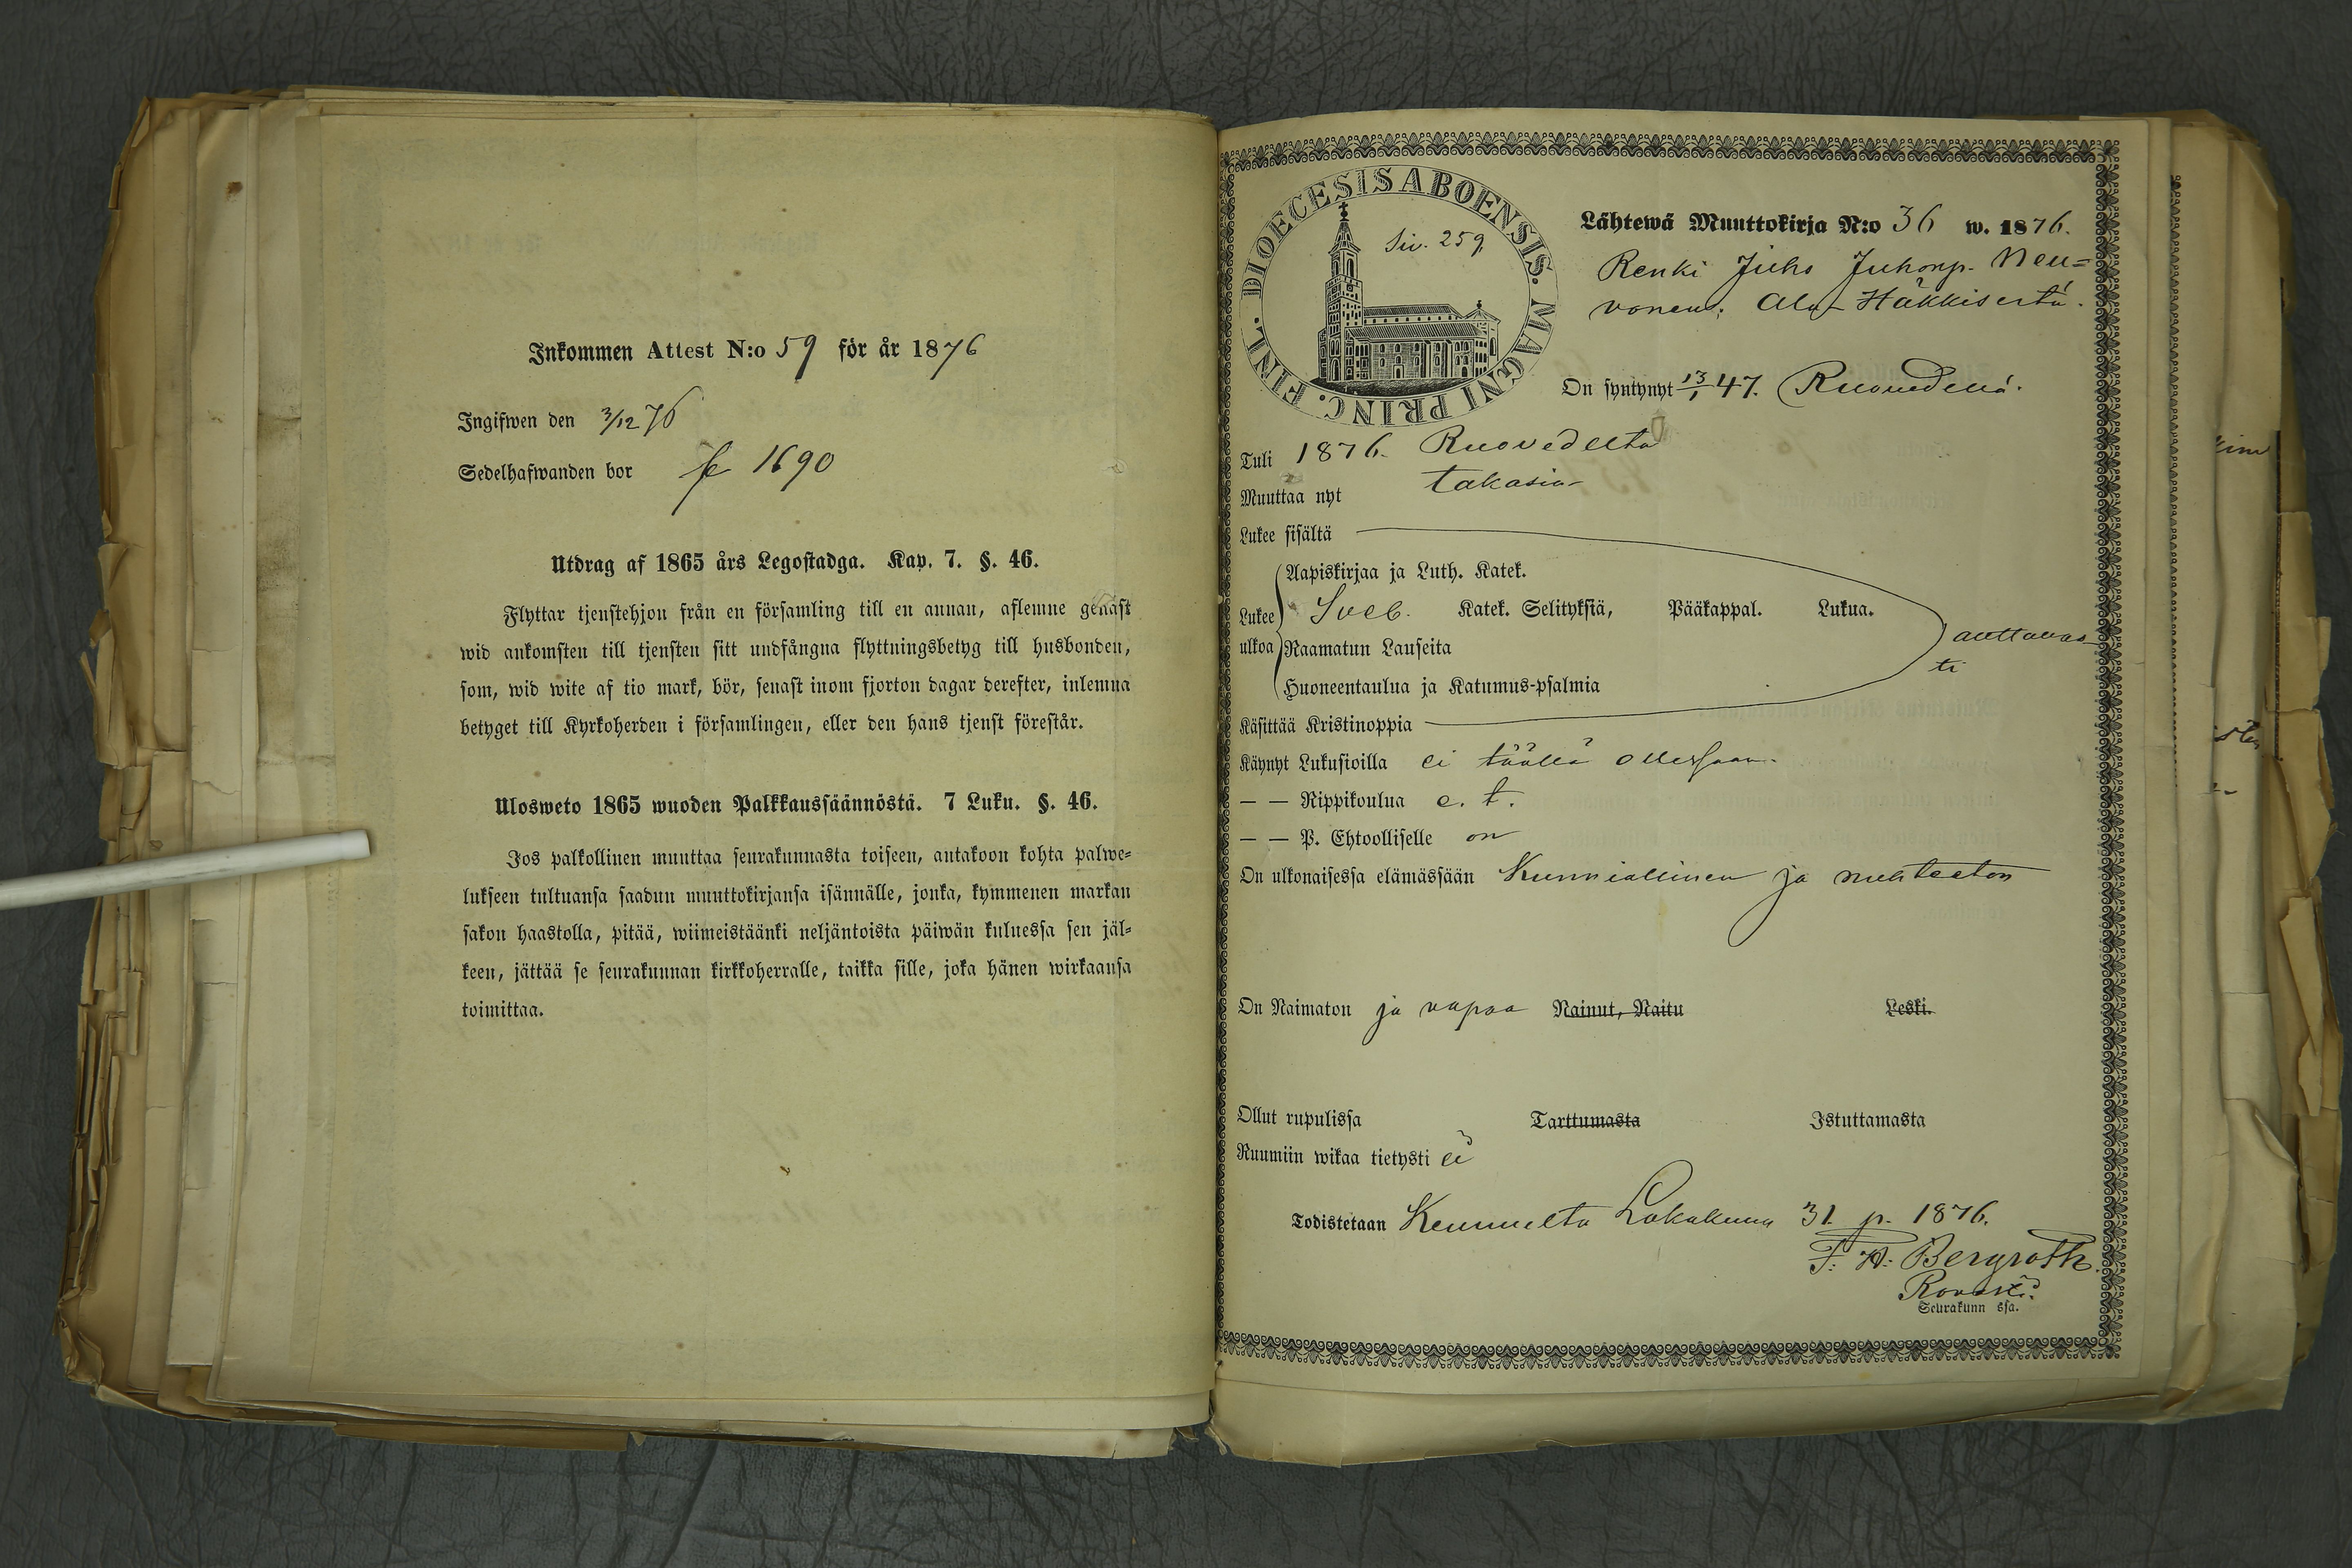 Inkommen Attest N:o 59 för år 1876
Ingifwen den 3/12 76
Sedelhafwanden bor fe 1690
Utdrag af 1865 års Legostadga. Kap. 7. §. 46.
Flyttar tjenstehjon från en församling till en annan, aflemne genast
wid ankomsten till tjensten sitt undfångna flyttningsbetyg till husbonden,
som, wid wite af tio mark, bör, senast inom fjorton dagar derefter, inlemna
betyget till Kyrkoherden i församlingen, eller den hans tjenst förestår.
Ulosweto 1865 wuoden Palkkaussäännöstä. 7 Luku. §. 46.
Jos palkollinen muuttaa seurakunnasta toiseen, antakoon kohta palwe=
lukseen tultuansa saadun muuttokirjansa isännälle, jonka, kymmenen markan
sakon haastolla, pitää, wiimeistäänki neljäntoista päiwän kuluessa sen jäl=
keen, jättää se seurakunnan kirkkoherralle, taikka sille, joka hänen wirkaansa
toimittaa.
DIOECESIS ABOENSIS. MAGNI PRINC. FINL.
Siv. 259
Lähtewä Muuttokirja N:o 36 w. 1876.
Renki Juho Juhonp. Neu=
vonen. Ala-Häkkisestä.
On syntynyt 13/1 47. Ruovedellä.
Tuli 1876. Ruovedeltä
Muuttaa nyt takasin
Lukee sisältä
Aapiskirjaa ja Luth. Katek.
Lukee Sveb. Katek. Selityksiä, Pääkappal. Lukua. auttavas-
ulkoa Raamatun Lauseita ti
Huoneentaulua ja Katumus-psalmia
Käsittää Kristinoppia
Käynyt Lukusioilla ei täällä ollessaan.
— — Rippikoulua e. t.
— — P. Ehtoolliselle on
On ulkonaisessa elämässään Kunniallinen ja nuhteeton
On Naimaton ja vapaa Nainut, Naitu Leski.
Ollut rupulissa Tarttumasta Istuttamasta
Ruumiin wikaa tietysti ei
Todistetaan Keuruulta Lokakuun 31 p. 1876.
F. W. Bergroth.
Rovasti.
Seurakunn ssa.